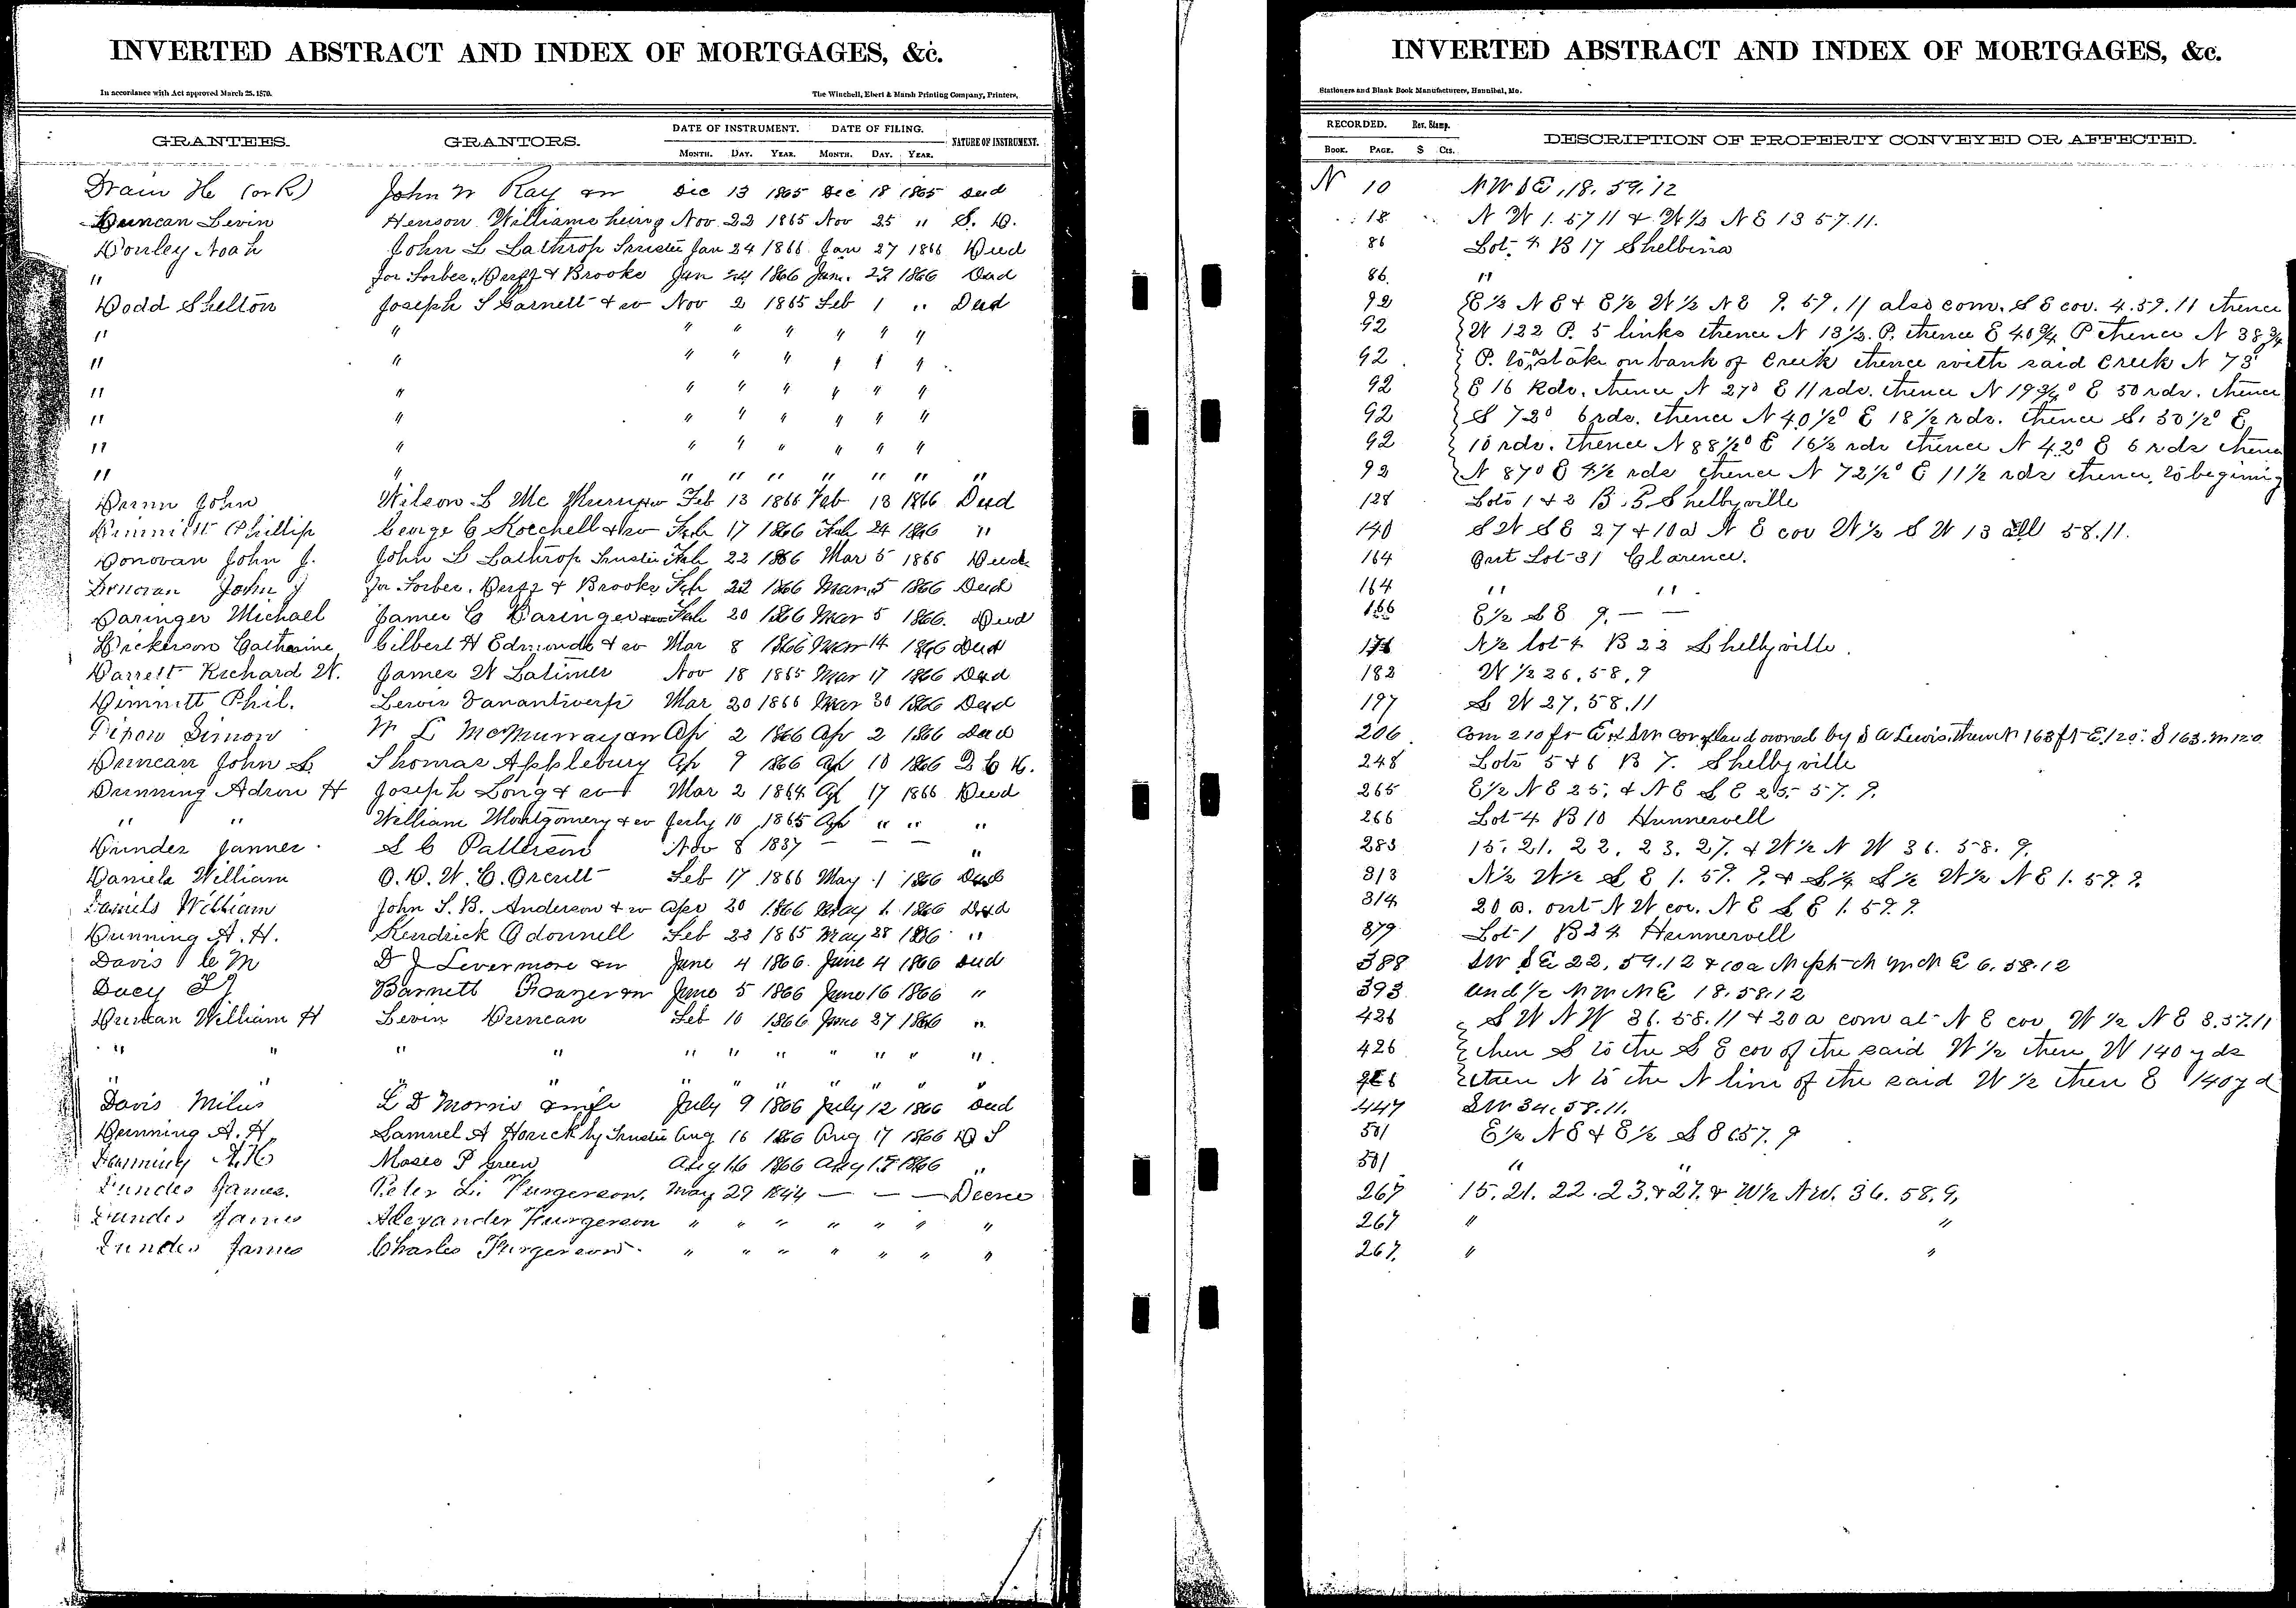 INVERTED ABSTRACT AND INDEX OF MORTGAGES, &c.
In accordance with Act approved March 25, 1870. The Winchell, Ebert & Marsh Printing Company, Printers,
GRANTEES. GRANTORS. DATE OF INSTRUMENT. DATE OF FILING. NATURE OF INSTRUMENT.
MONTH. DAY. YEAR. MONTH. DAY. YEAR.
Drain H (or R) John W Ray Dec 13 1865 Dec 18 1865 Deed
Duncan Levin Henson Williams heirs Nov 22 1865 Nov 25 "
Donley Noah John L Lathrop Trustee Jan 24 1866 Jan 27 1866 Deed
" for Forbes, & Brooks Jan 24 1866 Jan. 27 1866 Deed
Dodd Shelton Joseph S Garnett & Nov 2 1865 Feb 1 " Deed
" " " " " " " "
" " " " " " " "
" " " " " " " "
" " " " " " " "
" " " " " " " "
" " " " " " " " "
Dunn John Wilson L Feb 13 1866 Feb 13 1866 Deed
Dimmitt Phillip George Feb 17 1866 Feb 24 1866 "
Donovan John J. John L Lathrop Trustee Feb 22 1866 Mar 5 1866 Deed
Donovan John J for Forbes, & Brooks Feb 22 1866 Mar 5 1866 Deed
Daringer Michael James C Daringer Feb 20 1866 Mar 5 1866. Deed
Dickerson Catharine Gilbert H Edmonds & Mar 8 1866 Mar 14 1866 Deed
Darrett Richard W. James W Latimer Nov 18 1865 Mar 17 1866 Deed
Dimmitt Phil. Lewis Vanantwerp Mar 20 1866 Mar 30 1866 Deed
Dixon Simon W L McMurray Apr 2 1866 Apr 2 1866 Deed
Duncan John S. Thomas Applebury Ap 9 1866 Ap 10 1866
Dunning Adron H Joseph Long & Mar 2 1864 Ap 17 1866 Deed
" " William Montgomery & July 10 1865 Ap " " "
James L C Patterson Nov 8 1837 — — — "
Daniels William O. D. W. C. Feb 17 1866 May 1 1866 Deed
Daniels William John S. B. Anderson & Apr 20 1866 May 1 1866 Deed
Dunning A. H. Kendrick Odonnell Feb 23 1865 May 28 1866 "
Davis D J Levermore June 4 1866 June 4 1866 Deed
Barnett June 5 1866 June 16 1866 "
Duncan William H Levin Duncan Feb 10 1866 June 27 1866 "
" " " " " " " " " " "
" " " " " " " " " " "
Davis Milus L D Morris July 9 1866 July 12 1866 Deed
Dunning A. H. Samuel A by Trustee Aug 16 1866 Aug 17 1866
Dunning A. H. Moses P Green Aug 16 1866 Aug 17 1866 "
James. Peter May 29 1844 — — — Decree
James Alexander " " " " " " "
James Charles " " " " " " "
INVERTED ABSTRACT AND INDEX OF MORTGAGES, &c.
Stationers and Blank Book Manufacturers, Hannibal, Mo.
RECORDED. Rev. Stamp. DESCRIPTION OF PROPERTY CONVEYED OR AFFECTED.
BOOK. PAGE. $ Cts.
N 10 NW SE, 18. 59. 12
18 N W 1. 57 11 & W½ N E 13 57. 11.
86 Lot 4 B 17 Shelbina
86. "
92 E½ N E & E½ W½ N E 9. 59. 11 also com. S E cor. 4. 59. 11 thence
92 W 122 P. 5 links thence N 13½ P. thence E 40¾ P thence N 38¾
92 P. to a stake on bank of Creek thence with said Creek N 73
92 E 16 Rds. thence N 27° E 11 rds. thence N 19¾° E 50 rds. thence
92 S 73° 6 rds. thence N 40½° E 18½ rds. thence S. 50½° E
92 10 rds. thence N 88½° E 16½ rds thence N 42° E 6 rds thence
92 N 87° E 4½ rds thence N 72½° E 11½ rds thence to begining
128 Lots 1 & 2 B. 5 Shelbyville
140 S W S E 27 & 10 a N E cor W½ S W 13 all 58. 11.
164 Out Lot 31 Clarence.
164 " "
166 E½ S E 9. — —
N½ lot 4 B 23 Shelbyville.
182 W½ 26, 58, 9
197 S W 27, 58, 11
206 Com 210 ft E of SW cor of land owned by S A Lewis, thence N 163 ft E. 120. S 163. W 120
248 Lots 5 & 6 B 7. Shelbyville
265 E½ N E 25, & N E S E 25. 57. 9.
266 Lot 4 B 10 Hunnewell
283 15. 21. 22. 23. 27. & W½ N W 36. 58. 9.
313 N½ W½ S E 1. 57. 9. & S¼ S½ W½ N E 1. 57. 9.
314 20 a. out N W cor. N E S E 1. 57. 9.
379 Lot 1 B 24 Hunnewell
388 SW SE 22, 59. 12 & 10 a 6. 58. 12
393 und ½ NW NE 18. 58. 12
426 S W N W 36. 58. 11 & 20 a com at N E cor W½ N E 3. 57. 11
426 then S to the S E cor of the said W½ then W 140 yds
426 then N to the N line of the said W½ then E 140 yd
447 SW 34. 58. 11.
501 E½ N E & E½ S E 6 57. 9
501 " "
267 15. 21. 22. 23. & 27. & W½ NW. 36. 58. 9,
267 " "
267. " "